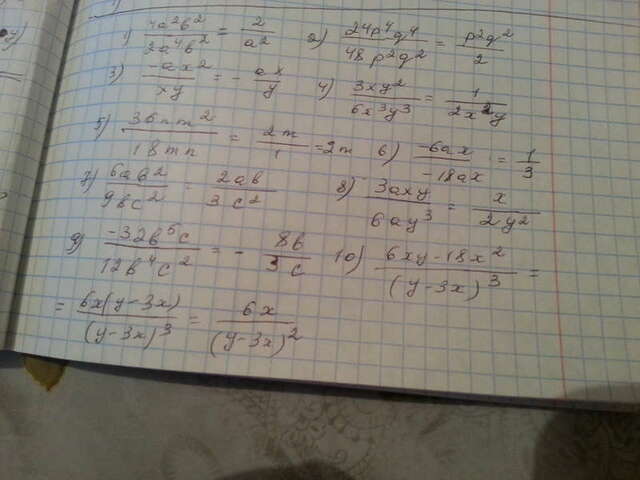 1) 4a²b²/2a⁴b² = 2/a² 2) 24p⁴q⁴/48p²q² = p²q²/2
3) -ax²/xy = - ax/y 4) 3xy²/6x³y³ = 1/2x²y
5) 36nm²/18mn = 2m/1 = 2m 6) -6ax/-18ax = 1/3
7) 6ab²/9bc² = 2ab/3c² 8) 3axy/6ay³ = x/2y²
9) -32b⁵c/12b⁴c² = - 8b/3c 10) 6xy-18x²/(y-3x)³ =
= 6x(y-3x)/(y-3x)³ = 6x/(y-3x)²